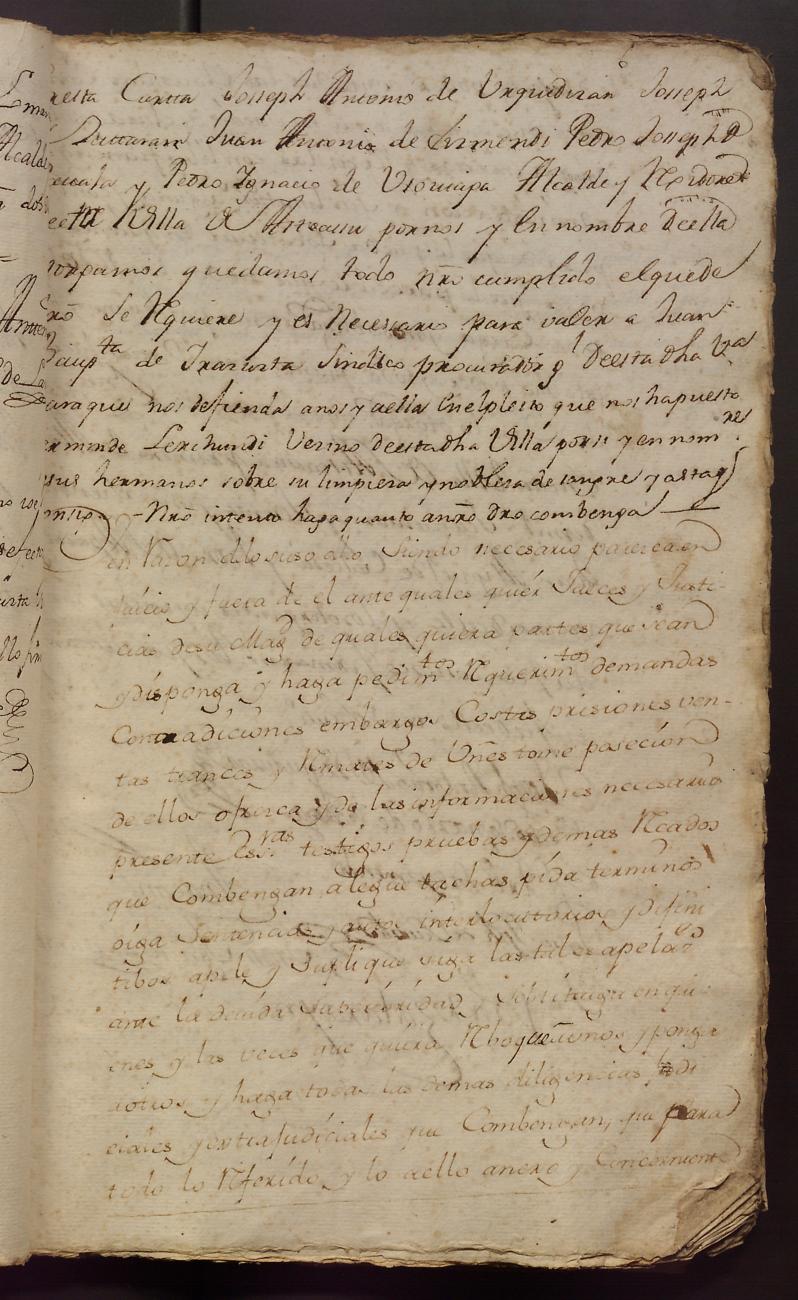 esta Cartta Josseph Antonio de Urquidizar Josseph
Juan Antonio de Lizmendi Pedro Josseph
y Pedro Ygnacio de Usoviaga Alcalde y Rexidores
Villa de Asteassu por nos y en nombre de ella
otorgamos que damos todo nro cumplido el que de
dro se Requiere y es Necessario para valer a Juan
Baup.ta de Yrazusta Sindico procurador g.l de esta dha V.a
para que nos defienda a nos y a ella en el pleito que nos ha puesto
Lerchundi Vecino de esta dha Villa por si y en nom.res
sus hermanos sobre su limpieza y nobleza de sangre y a este
Nro intento haga quanto a nro dro combenga
en Razon de lo suso dho, siendo necesario paresca en
Juicio y fuera de el ante quales quier Jueces y Justi-
cias de su Mag.d de quales quiera partes que sean
y disponga y haga pedim.tos Requerim.tos demandas
Contradiciones embargos Costas prisiones ven-
tas trances y Rmates de Vnes tome posecion
de ellos ofresca y de las informaciones necesarias
presente Ess.ras testigos pruebas y demas Rcados
que Combengan alegue tachas pida terminos
oiga Sentencias y autos interlocutorios y difini
tibos apele y Suplique siga las tales apelaz.s
ante la devida Superioridad, Sobstituya en qui-
enes y las veces que quiera Reboque unos y ponga
otros y haga todas las demas diligencias Judi
ciales y extrajudiciales que Combengan, que para
todo lo Referido y lo a ello anexo y Concerniente